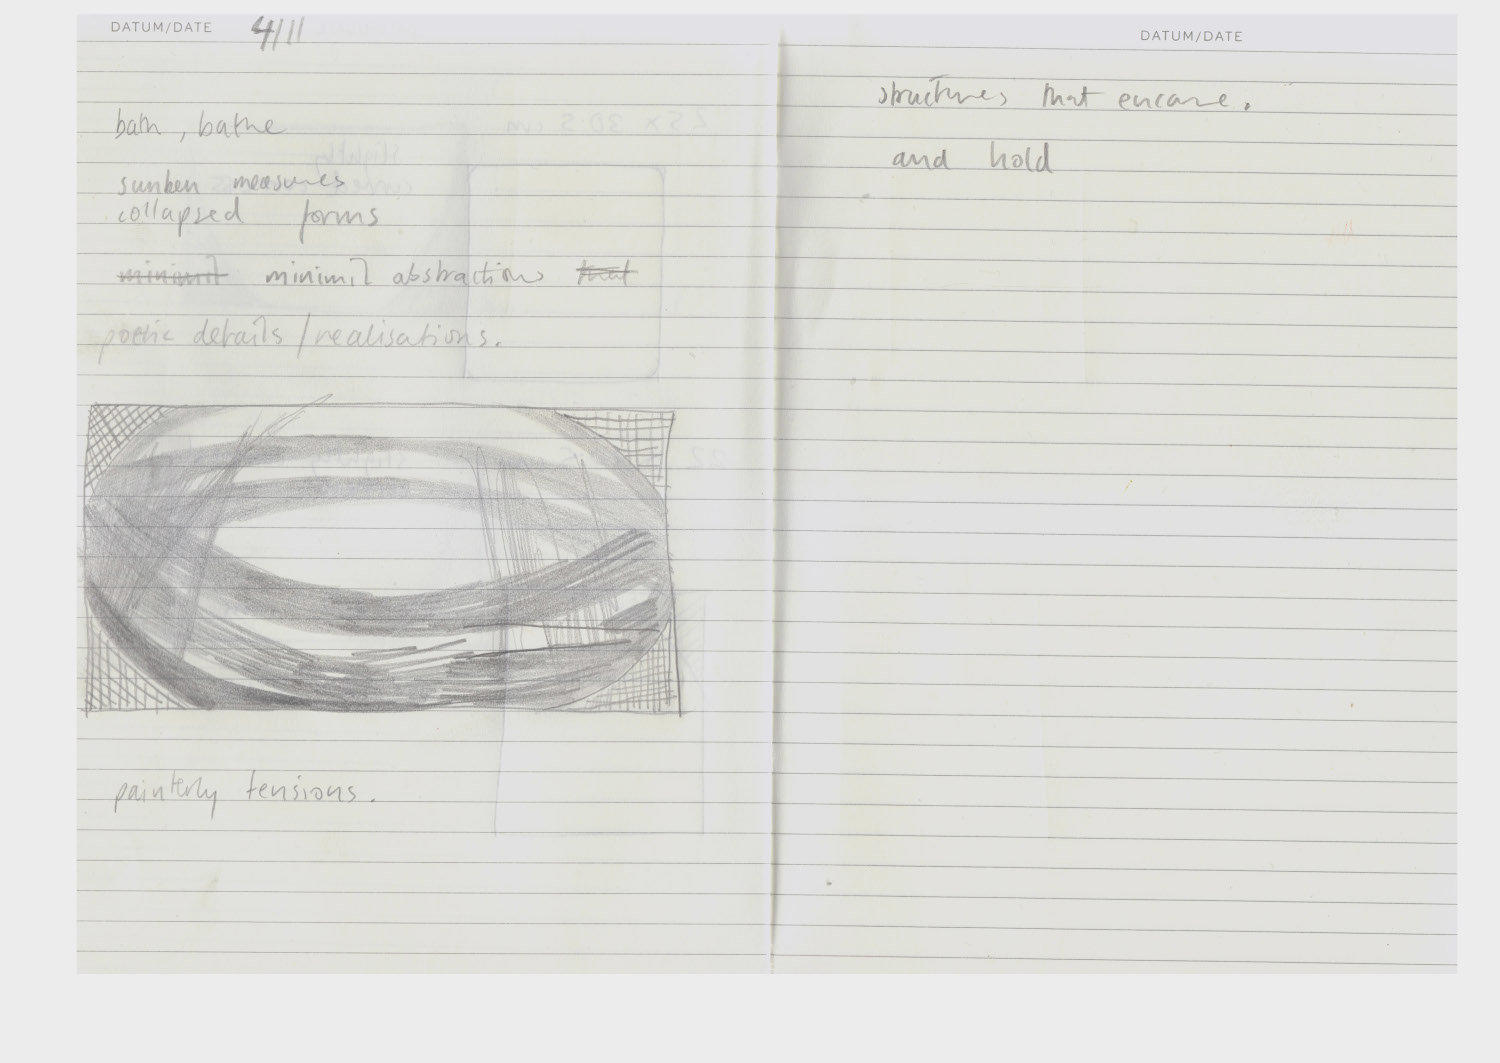 DATUM/DATE 4/11
bath, bathe
sunken measures
collapsed forms
minimil minimil abstractions that
poetic details/realisations.
painterly tensions.
DATUM/DATE
structures that encave.
and hold